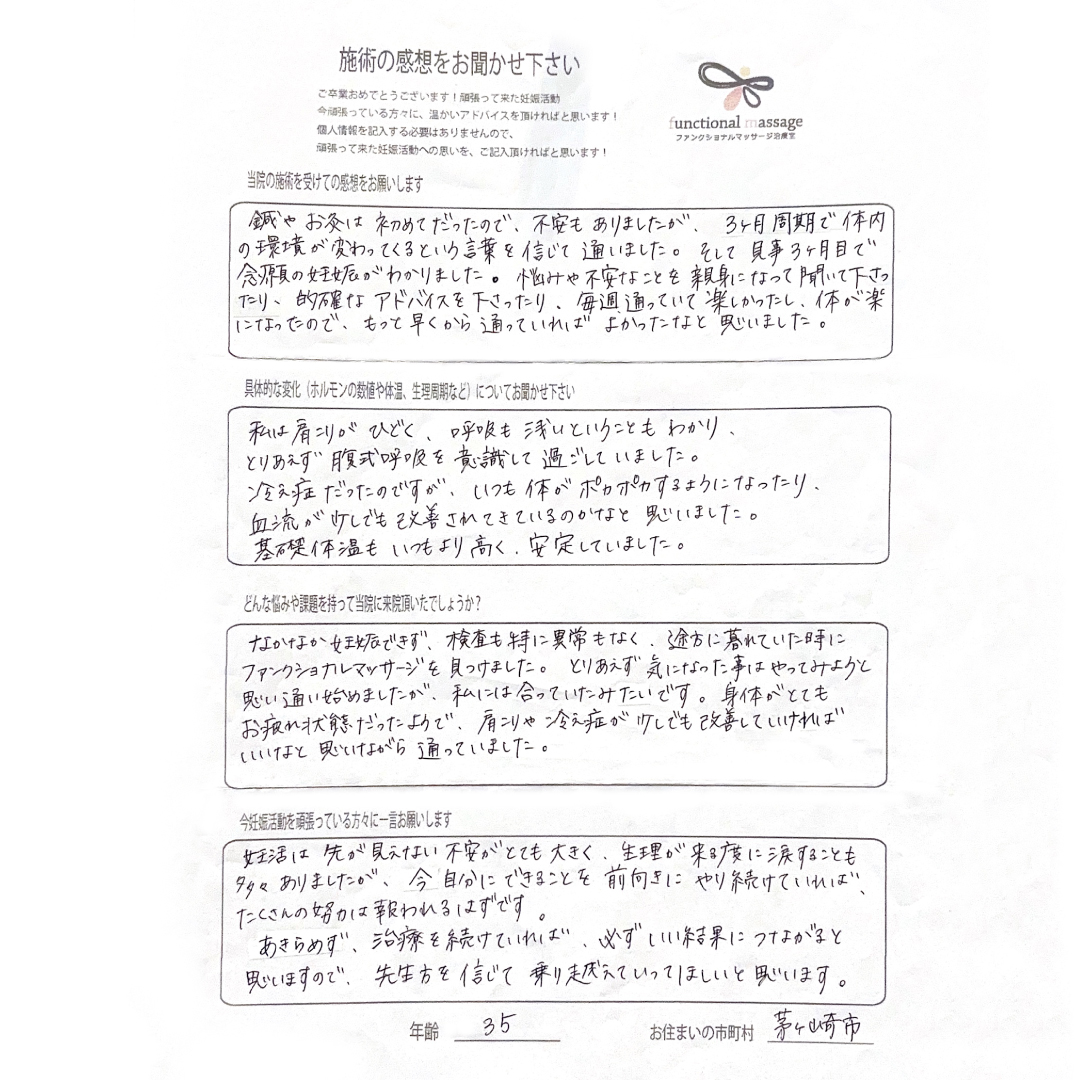 施術の感想をお聞かせ下さい
ご卒業おめでとうございます！頑張って来た妊娠活動
今頑張っている方々に、温かいアドバイスを頂ければと思います！
個人情報を記入する必要はありませんので、
頑張って来た妊娠活動への思いを、ご記入頂ければと思います！
functional massage
ファンクショナルマッサージ治療室
当院の施術を受けての感想をお願いします
鍼や お灸は 初めてだったので、不安も ありましたが、3ヶ月周期で体内
の環境が変わってくるという言葉を信じて通いました。そして見事3ヶ月目で
念願の妊娠がわかりました。悩みや不安なことを親身になって聞いて下さっ
たり、的確な アドバイスを下さったり、毎週通っていて楽しかったし、体が楽
になったので、もっと早くから通っていれば よかったなと思いました。
具体的な変化（ホルモンの数値や体温、生理周期など）についてお聞かせ下さい
私は肩こりが ひどく、呼吸も 浅いということも わかり、
とりあえず 腹式呼吸を 意識して過ごしていました。
冷え症だったのですが、いつも体が ポカポカするようになったり、
血流が少しでも改善されてきているのかなと思いました。
基礎体温も いつもより高く、安定していました。
どんな悩みや課題を持って当院に来院頂いたでしょうか？
なかなか妊娠できず、検査も特に異常もなく、途方に暮れていた時に
ファンクショナルマッサージを見つけました。とりあえず気になった事はやってみようと
思い通い始めましたが、私には合っていたみたいです。身体がとても
お疲れ状態だったようで、肩こりや冷え症が少しでも改善していければ
いいなと 思いながら 通っていました。
今妊娠活動を頑張っている方々に一言お願いします
妊活は 先が見えない 不安がとても大きく、生理が来る度に涙することも
多々ありましたが、今自分にできることを 前向きに やり続けていれば、
たくさんの努力は報われるはずです。
あきらめず、治療を続けていれば、必ずいい結果につながると
思いますので、先生方を信じて 乗り越えていってほしいと思います。
年齢 35
お住まいの市町村 茅ヶ崎市